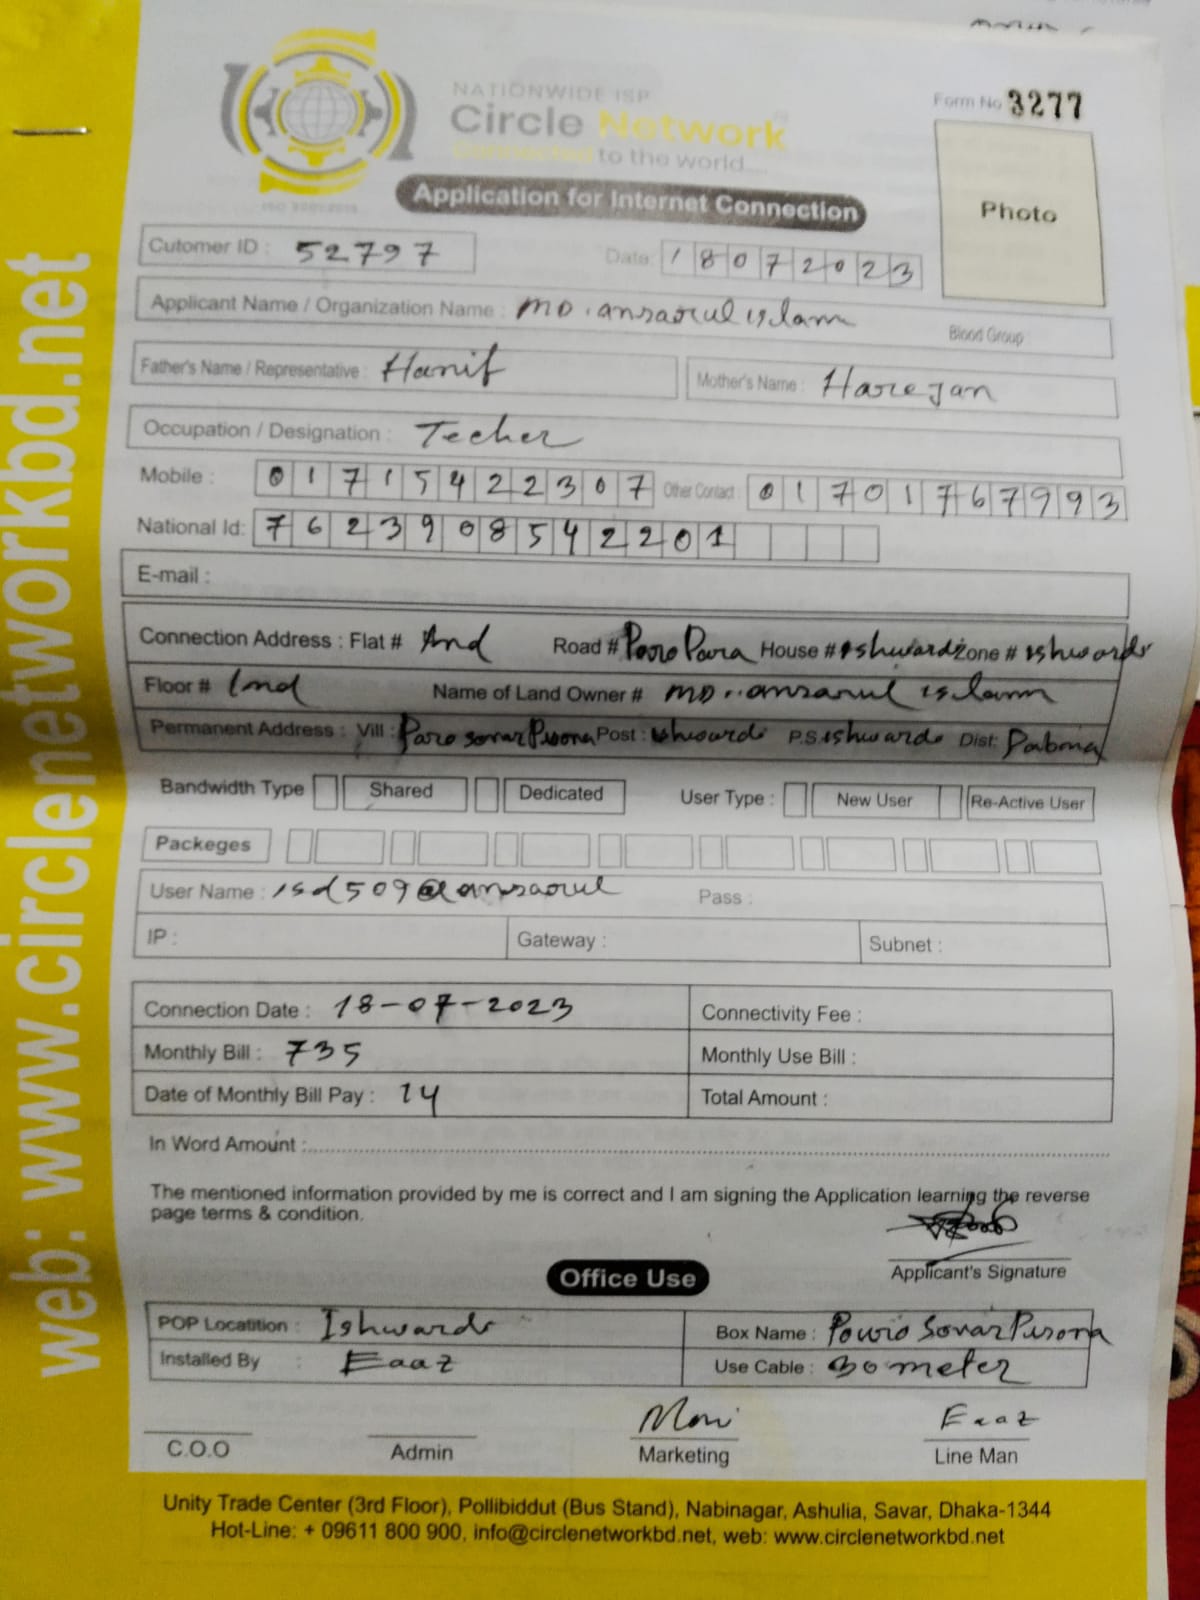 NATIONWIDE ISP
Circle Network
Connected to the world....
Form No 3277
Photo
Application for Internet Connection
Cutomer ID : 52797
Date: 18072023
Applicant Name / Organization Name : MD. ansarul islam
Blood Group :
Father's Name / Representative : Hanif
Mother's Name : Harejan
Occupation / Designation : Techer
Mobile : 01715422307 Other Contact : 01701767993
National Id: 7623908542201
E-mail :
Connection Address : Flat # Road # Para House # Ishwardi Zone # Ishwardi
Floor # Name of Land Owner # MD. ansarul islam
Permanent Address : Vill : Post : Ishwardi P.S Ishwardi Dist: Pabna
Bandwidth Type Shared Dedicated User Type : New User Re-Active User
Packeges
User Name : isd509@ansarul Pass :
IP : Gateway : Subnet :
Connection Date : 18-07-2023 Connectivity Fee :
Monthly Bill : 735 Monthly Use Bill :
Date of Monthly Bill Pay : 14 Total Amount :
In Word Amount :
The mentioned information provided by me is correct and I am signing the Application learning the reverse
page terms & condition.
Applicant's Signature
Office Use
POP Locatition : Ishwardi Box Name :
Installed By : Eaaz Use Cable : 30 meter
Moni Eaaz
C.O.O Admin Marketing Line Man
Unity Trade Center (3rd Floor), Pollibiddut (Bus Stand), Nabinagar, Ashulia, Savar, Dhaka-1344
Hot-Line: + 09611 800 900, info@circlenetworkbd.net, web: www.circlenetworkbd.net
web: www.circlenetworkbd.net